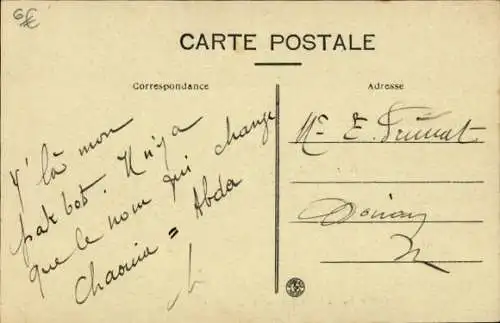 6€
CARTE POSTALE
Correspondance
Adresse
V'là mon
pak bot. N'ya
que le nom qui change
Chaouia = Abda
Mr E.
Douai